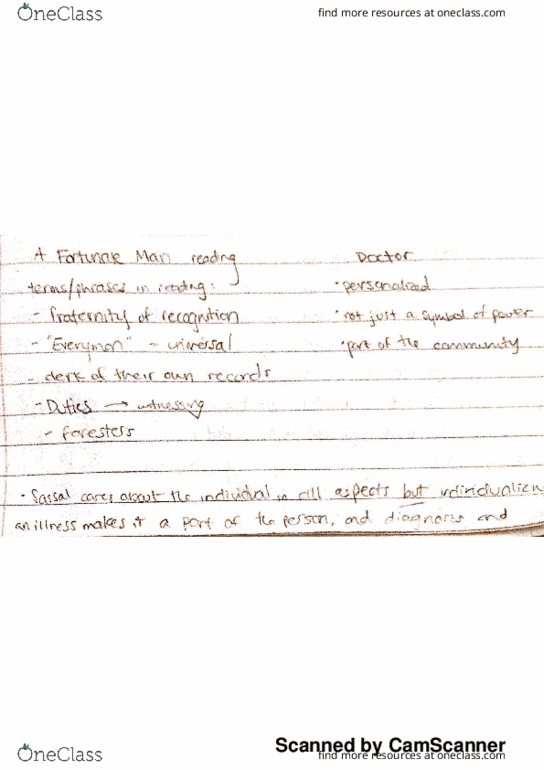 OneClass
find more resources at oneclass.com
A Fortunate Man reading
Doctor
terms/phrases in reading:
· personalized
- fraternity of recognition
· not just a symbol of power
- "Everyman" - universal
· part of the community
- clerk of their own records
- Duties → witnessing
- foresters
· Sassal cares about the individual in all aspects but
an illness makes it a part of the person, and diagnoses and
Scanned by CamScanner
OneClass
find more resources at oneclass.com